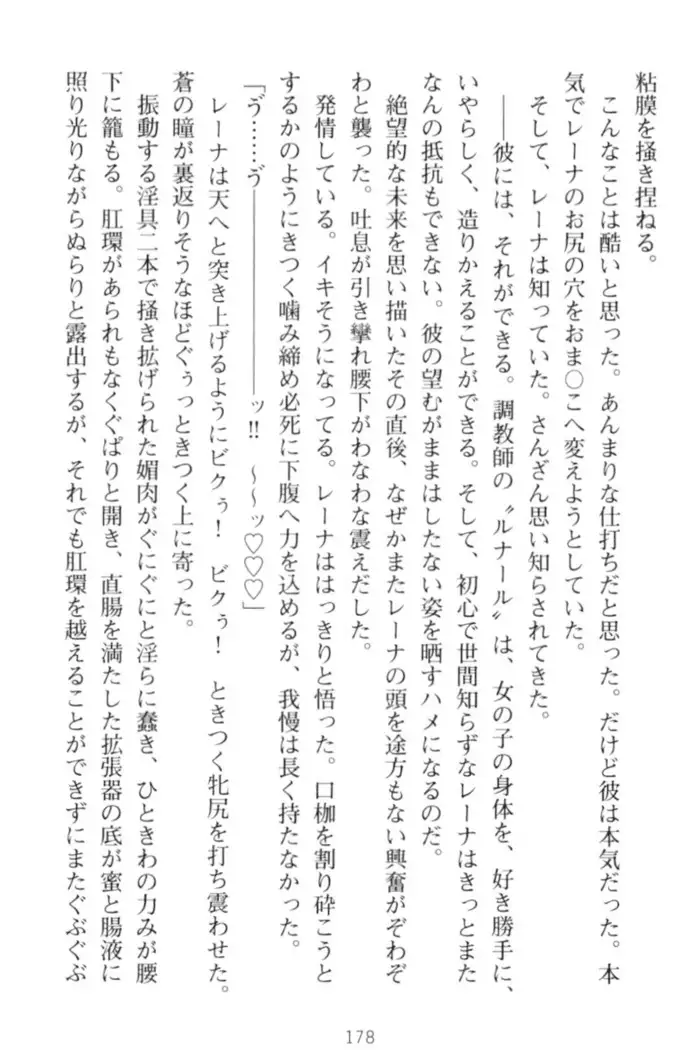 粘膜を掻き捏ねる。
　こんなことは酷いと思った。あんまりな仕打ちだと思った。だけど彼は本気だった。本
気でレーナのお尻の穴をおま〇こへ変えようとしていた。
　そして、レーナは知っていた。さんざん思い知らされてきた。
　――彼には、それができる。調教師の〝ルナール〟は、女の子の身体を、好き勝手に、
いやらしく、造りかえることができる。そして、初心で世間知らずなレーナはきっとまた
なんの抵抗もできない。彼の望むがままはしたない姿を晒すハメになるのだ。
　絶望的な未来を思い描いたその直後、なぜかまたレーナの頭を途方もない興奮がぞわぞ
わと襲った。吐息が引き攣れ腰下がわなわな震えだした。
　発情している。イキそうになってる。レーナははっきりと悟った。口枷を割り砕こうと
するかのようにきつく噛み締め必死に下腹へ力を込めるが、我慢は長く持たなかった。
「ゔ……ゔ――――――ッ!!　〜〜ッ♡♡♡」
　レーナは天へと突き上げるようにビクぅ！　ビクぅ！　ときつく牝尻を打ち震わせた。
蒼の瞳が裏返りそうなほどぐぅっときつく上に寄った。
　振動する淫具二本で掻き拡げられた媚肉がぐにぐにと淫らに蠢き、ひときわの力みが腰
下に籠もる。肛環があられもなくぐぱりと開き、直腸を満たした拡張器の底が蜜と腸液に
照り光りながらぬらりと露出するが、それでも肛環を越えることができずにまたぐぶぐぶ
178